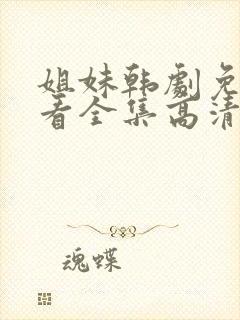 姐妹韩劇免
看全集高清
魂蝶